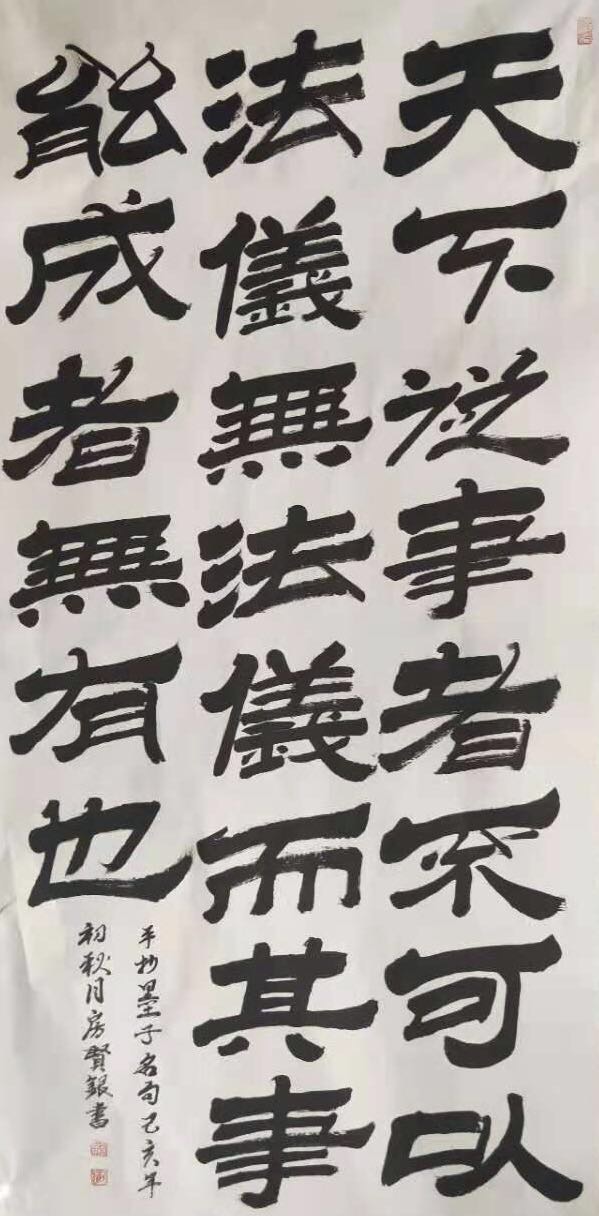 天下從事者不可以
法儀無法儀而其事
能成者無有也
平抄墨子名句己亥年
初秋月房賢銀書